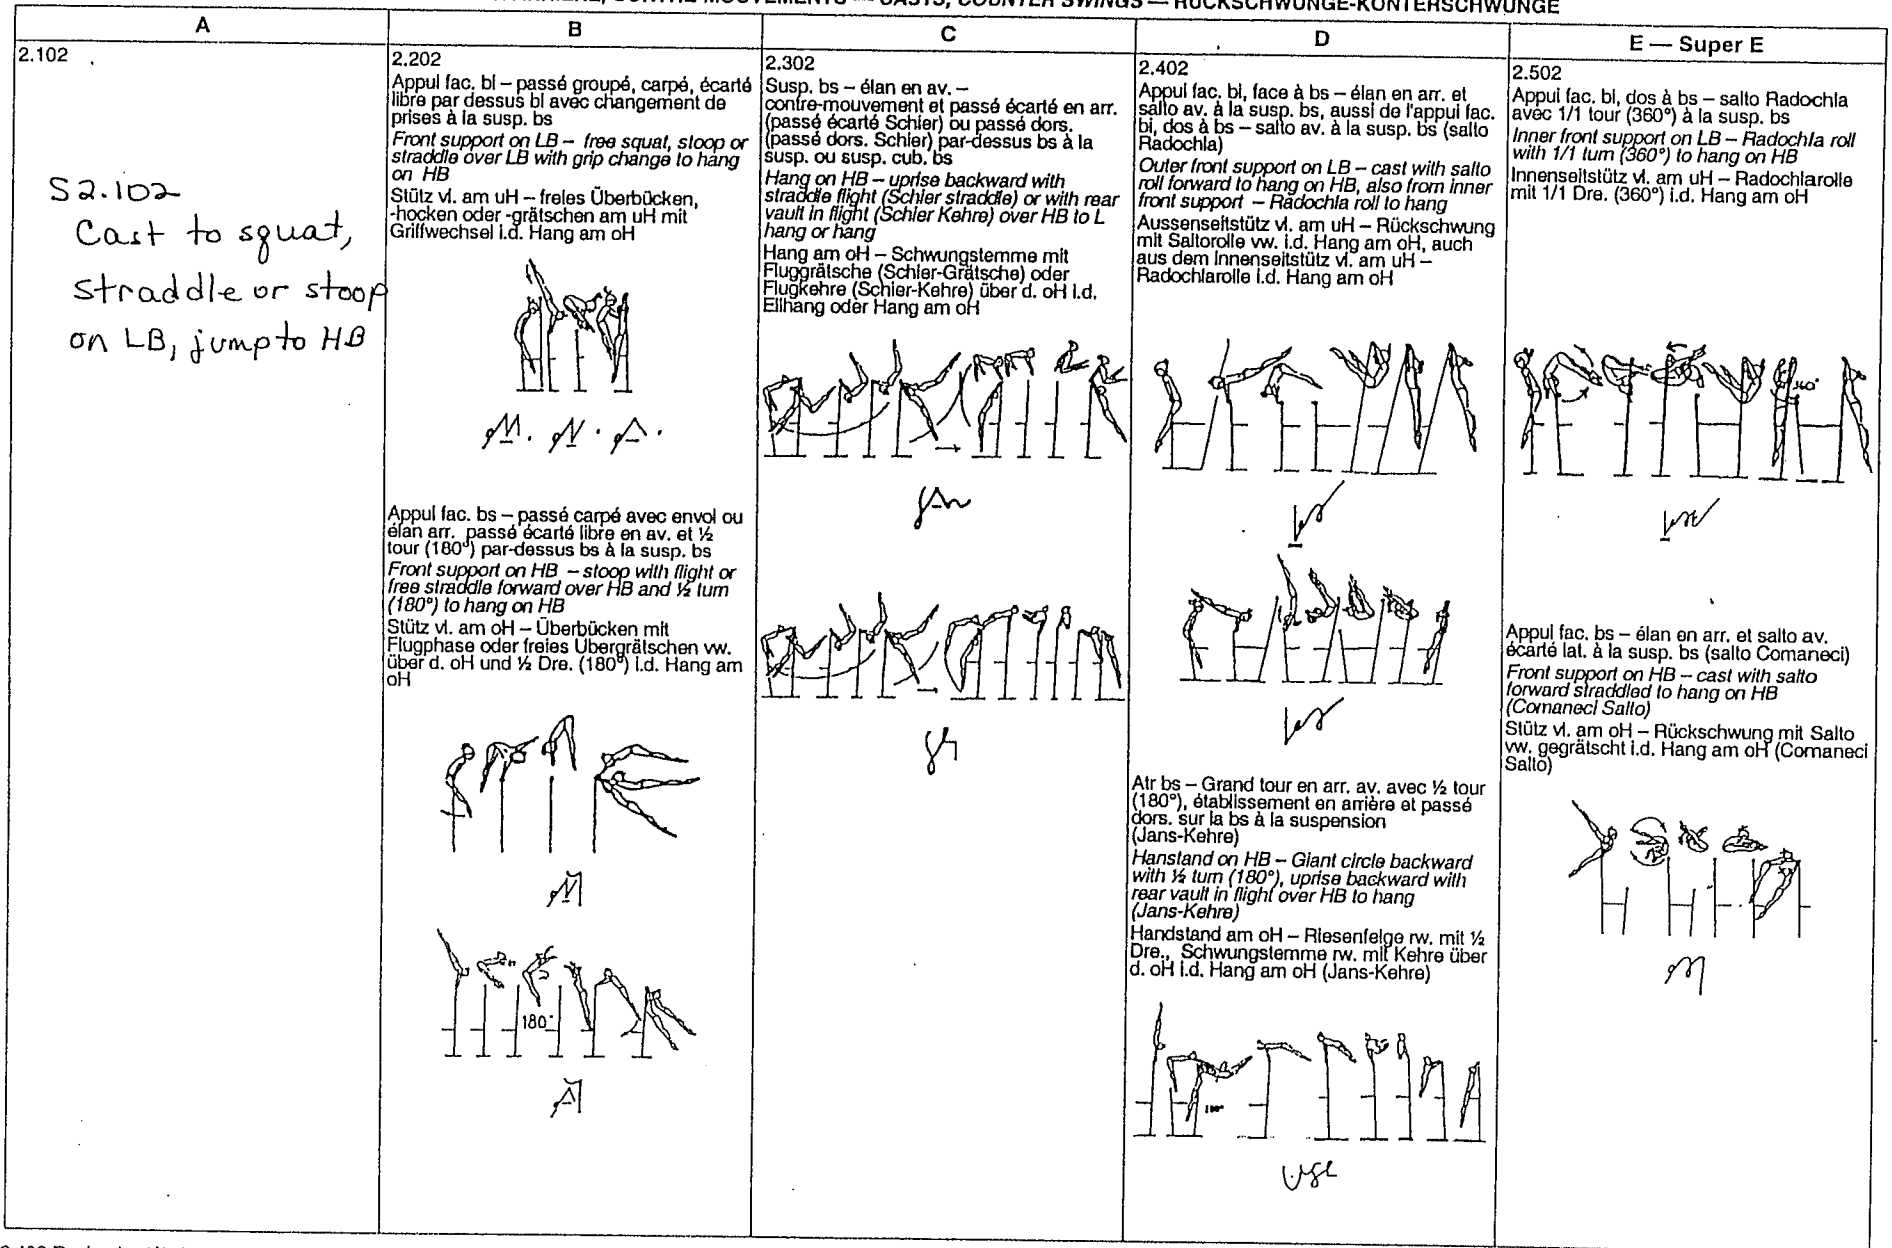 CASTS, COUNTER SWINGS — RÜCKSCHWÜNGE-KONTERSCHWÜNGE
A
B
C
D
E — Super E
2.102
S2.102
Cast to squat,
straddle or stoop
on LB, jump to HB
2.202
Appui fac. bi – passé groupé, carpé, écarté
libre par dessus bi avec changement de
prises à la susp. bs
Front support on LB – free squat, stoop or
straddle over LB with grip change to hang
on HB
Stütz vl. am uH – freies Überbücken,
-hocken oder -grätschen am uH mit
Griffwechsel i.d. Hang am oH
Appui fac. bs – passé carpé avec envol ou
élan arr. passé écarté libre en av. et ½
tour (180°) par-dessus bs à la susp. bs
Front support on HB – stoop with flight or
free straddle forward over HB and ½ turn
(180°) to hang on HB
Stütz vl. am oH – Überbücken mit
Flugphase oder freies Übergrätschen vw.
über d. oH und ½ Dre. (180°) i.d. Hang am
oH
180°
2.302
Susp. bs – élan en av. –
contre-mouvement et passé écarté en arr.
(passé écarté Schier) ou passé dors.
(passé dors. Schier) par-dessus bs à la
susp. ou susp. cub. bs
Hang on HB – uprise backward with
straddle flight (Schier straddle) or with rear
vault in flight (Schier Kehre) over HB to L
hang or hang
Hang am oH – Schwungstemme mit
Fluggrätsche (Schier-Grätsche) oder
Flugkehre (Schier-Kehre) über d. oH i.d.
Ellhang oder Hang am oH
2.402
Appui fac. bi, face à bs – élan en arr. et
salto av. à la susp. bs, aussi de l'appui fac.
bi, dos à bs – salto av. à la susp. bs (salto
Radochla)
Outer front support on LB – cast with salto
roll forward to hang on HB, also from inner
front support – Radochla roll to hang
Aussenseitstütz vl. am uH – Rückschwung
mit Saltorolle vw. i.d. Hang am oH, auch
aus dem Innenseitstütz vl. am uH –
Radochlarolle i.d. Hang am oH
Atr bs – Grand tour en arr. av. avec ½ tour
(180°), établissement en arrière et passé
dors. sur la bs à la suspension
(Jans-Kehre)
Hanstand on HB – Giant circle backward
with ½ turn (180°), uprise backward with
rear vault in flight over HB to hang
(Jans-Kehre)
Handstand am oH – Riesenfelge rw. mit ½
Dre., Schwungstemme rw. mit Kehre über
d. oH i.d. Hang am oH (Jans-Kehre)
180°
2.502
Appui fac. bi, dos à bs – salto Radochla
avec 1/1 tour (360°) à la susp. bs
Inner front support on LB – Radochla roll
with 1/1 turn (360°) to hang on HB
Innenseitstütz vl. am uH – Radochlarolle
mit 1/1 Dre. (360°) i.d. Hang am oH
360°
Appui fac. bs – élan en arr. et salto av.
écarté lat. à la susp. bs (salto Comaneci)
Front support on HB – cast with salto
forward straddled to hang on HB
(Comaneci Salto)
Stütz vl. am oH – Rückschwung mit Salto
vw. gegrätscht i.d. Hang am oH (Comaneci
Salto)